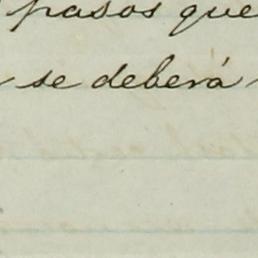 pasos que
se deberá